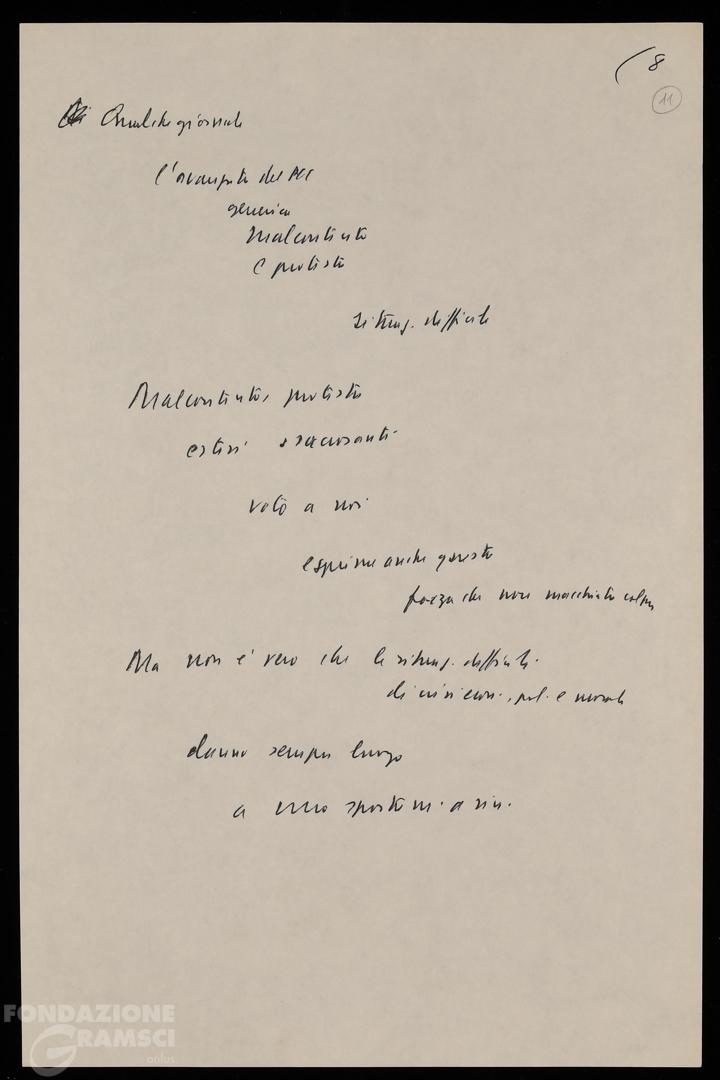 ( 8
11
Qualche giornale
l'avanzata del PCI
generico
malcontento
e protesta
situaz. difficile
Malcontento, protesta
estesi e sacrosanti
voto a noi
esprime anche questo
forza che non macchiata colpe
Ma non è vero che le situaz. difficili
di crisi econ., pol. e morale
danno sempre luogo
a uno spostam. a sin.
FONDAZIONE
GRAMSCI
onlus